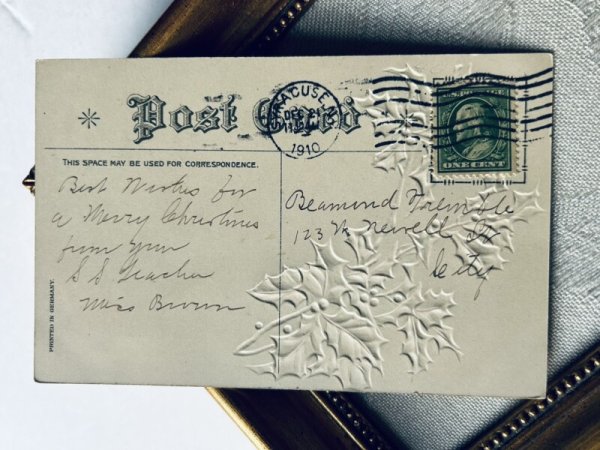 Post Card
SYRACUSE, N.Y.
DEC
1910
ONE CENT
THIS SPACE MAY BE USED FOR CORRESPONDENCE.
Best Wishes for
a Merry Christmas
from your
S S Teacher
Miss Brown
Beamond Tremble
123 W. Newell St
City
PRINTED IN GERMANY.